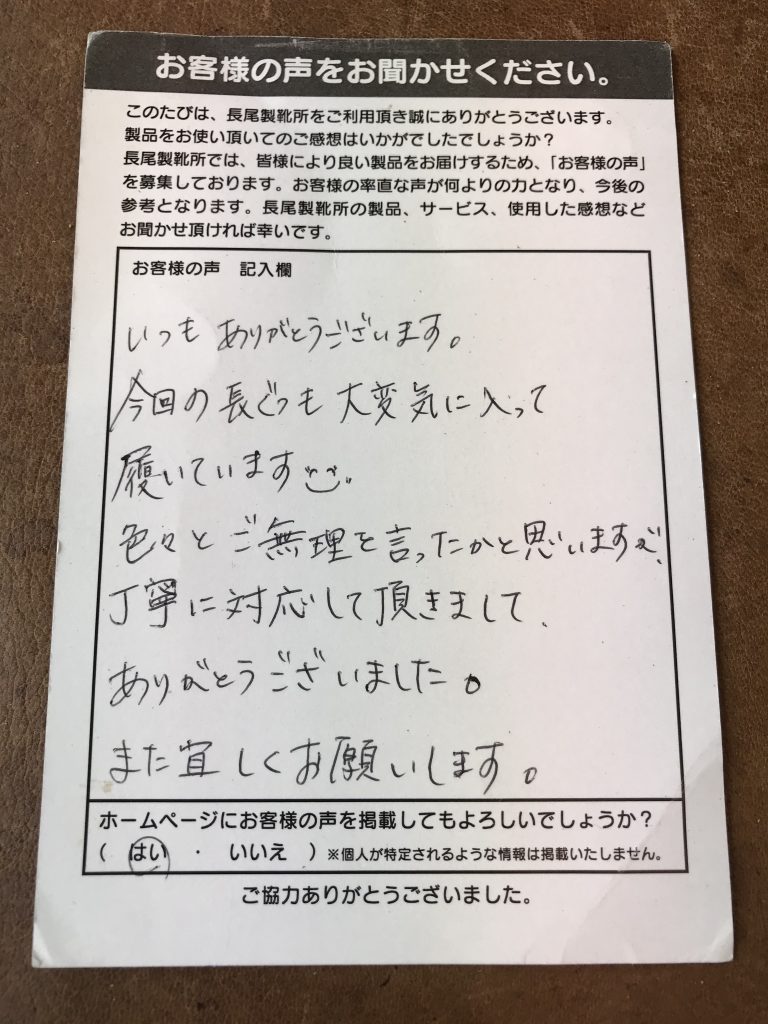 お客様の声をお聞かせください。
このたびは、長尾製靴所をご利用頂き誠にありがとうございます。
製品をお使い頂いてのご感想はいかがでしたでしょうか？
長尾製靴所では、皆様により良い製品をお届けするため、「お客様の声」
を募集しております。お客様の率直な声が何よりの力となり、今後の
参考となります。長尾製靴所の製品、サービス、使用した感想など
お聞かせ頂ければ幸いです。
お客様の声　記入欄
いつもありがとうございます。
今回の長ぐつも大変気に入って
履いています
色々とご無理を言ったかと思いますが、
丁寧に対応して頂きまして、
ありがとうございました。
また宜しくお願いします。
ホームページにお客様の声を掲載してもよろしいでしょうか？
（　はい　・　いいえ　）※個人が特定されるような情報は掲載いたしません。
ご協力ありがとうございました。